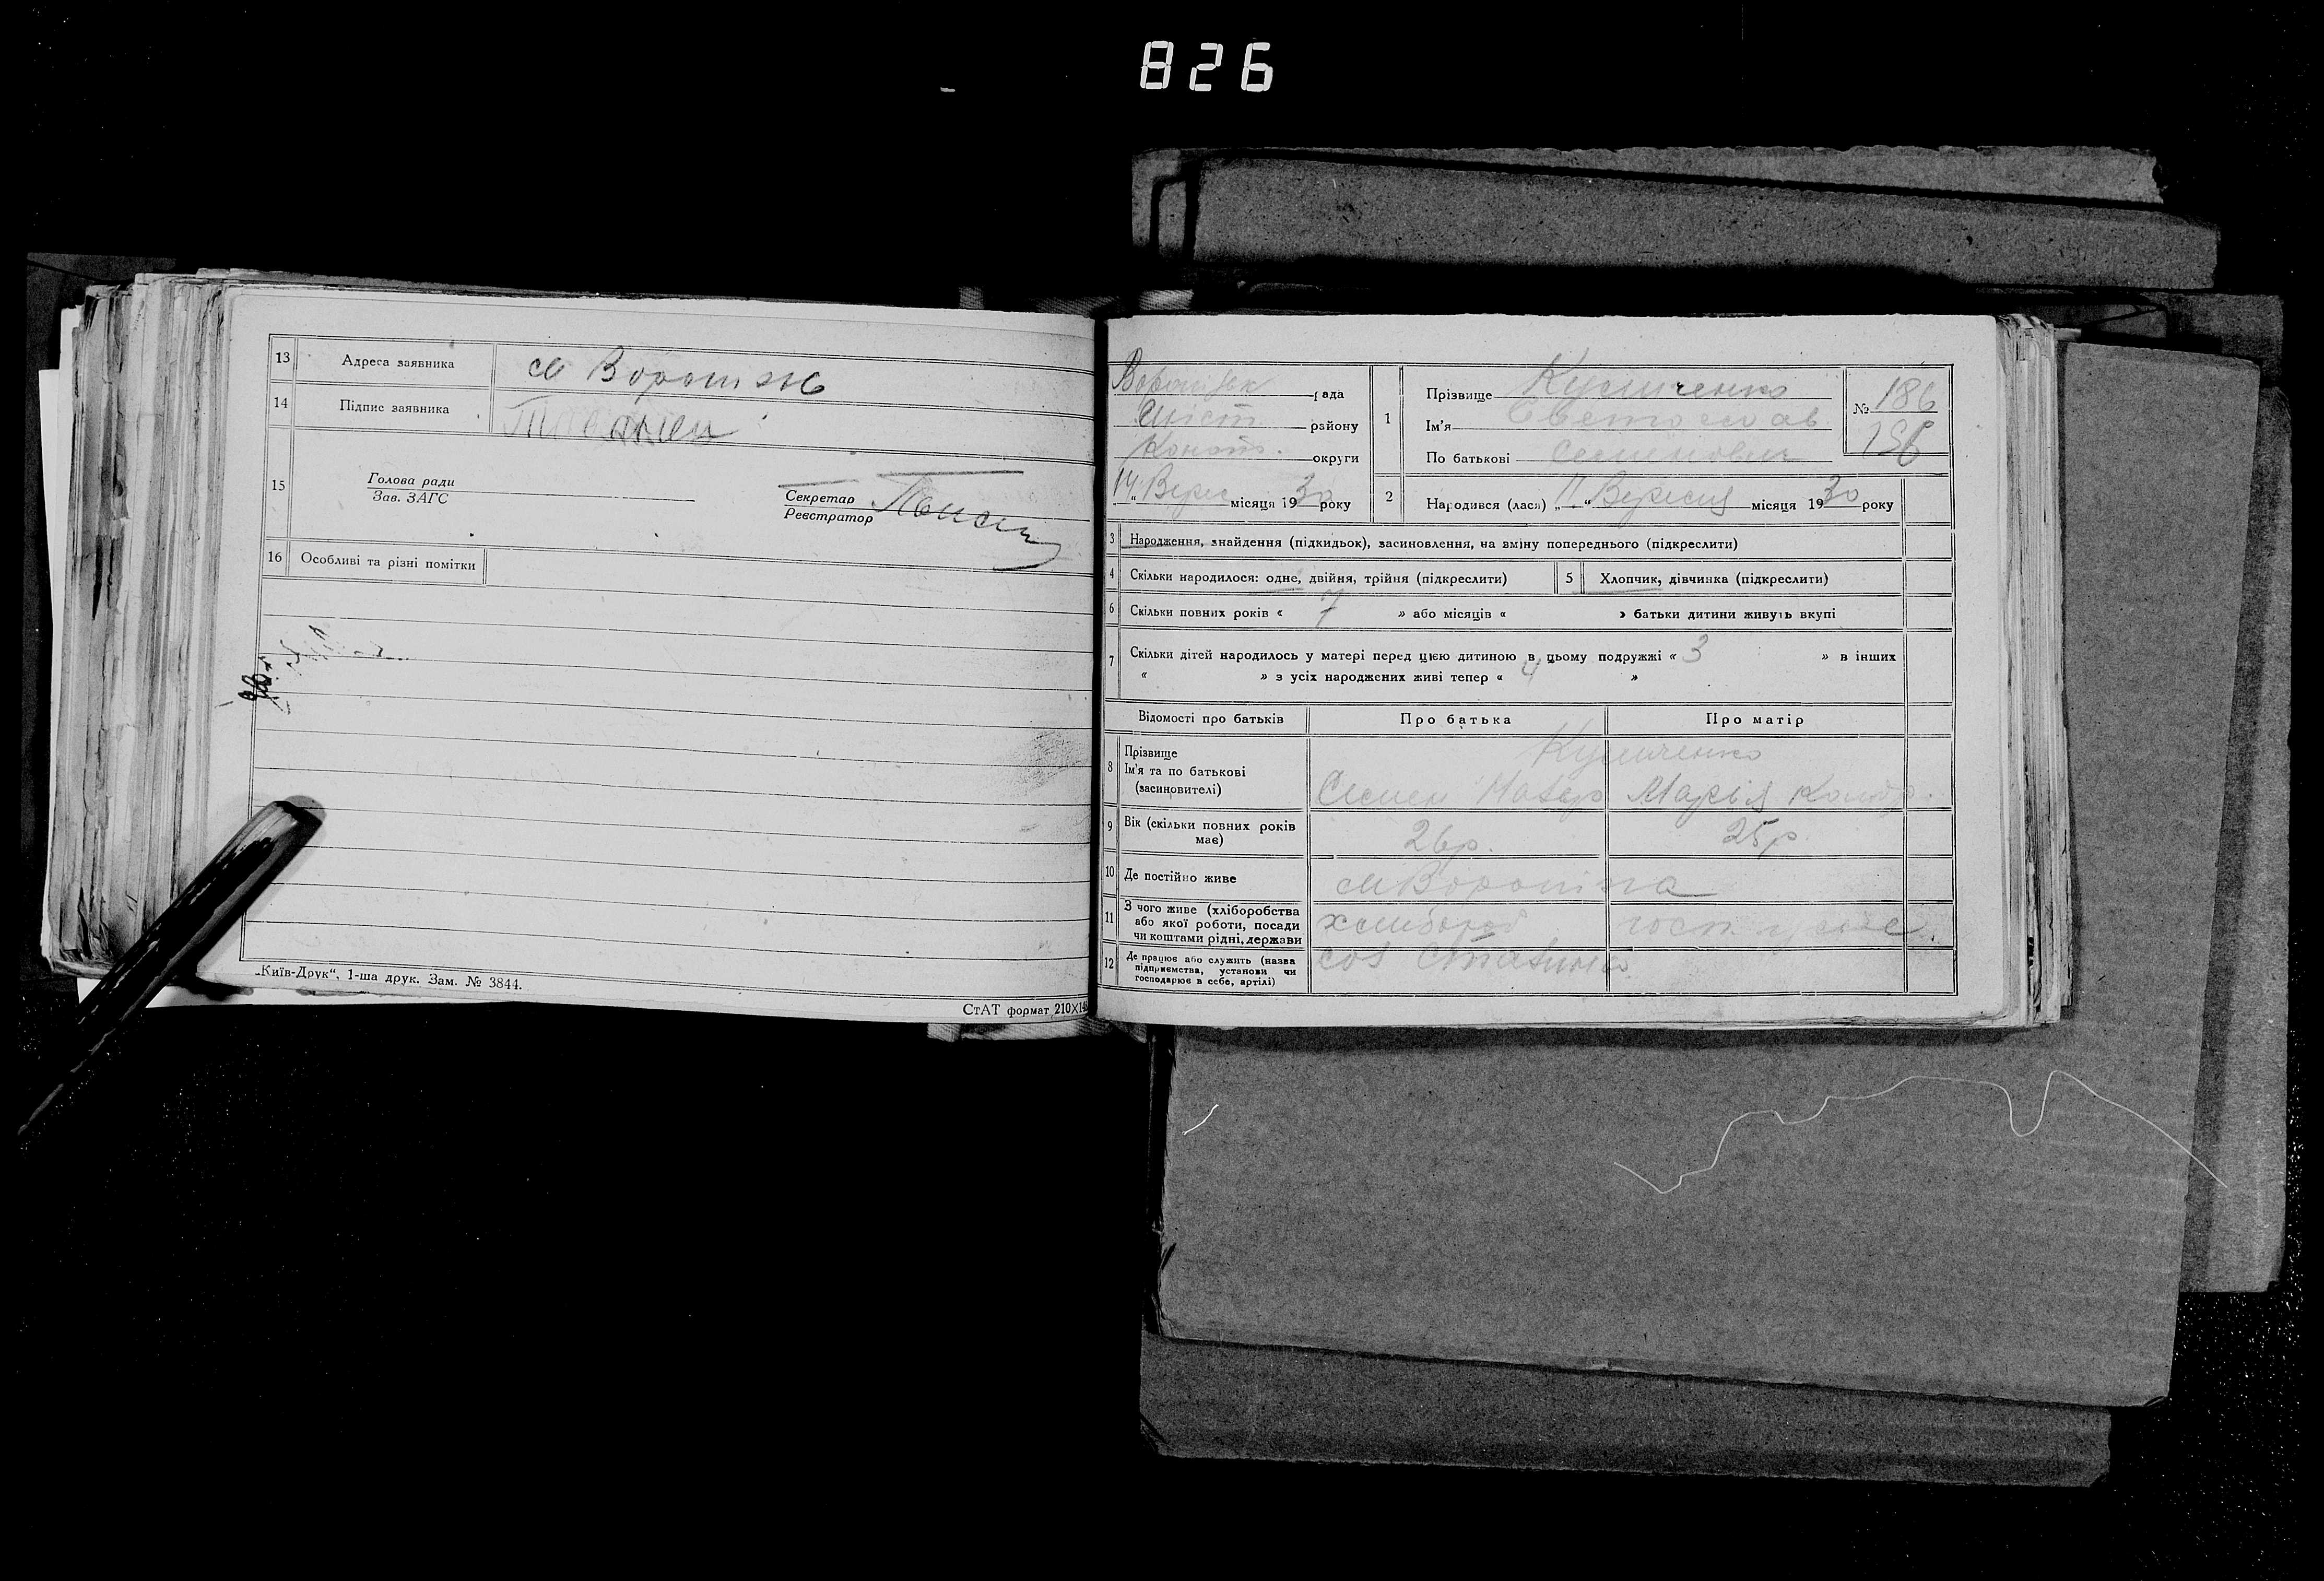 826
13 Адреса заявника м Вороніж
14 Підпис заявника
15 Голова ради
Зав. ЗАГС
Секретар
Реєстратор
16 Особливі та різні помітки
„Київ-Друк“, 1-ша друк. Зам. № 3844.
СтАТ формат 210X14
Вороніжськ рада
району
Коното. округи
14 „ Верес місяця 1930 року
1 Прізвище
Ім'я Светослав
По батькові Семенович
№ 186
156
2 Народився (лася) „11“ Вересня місяця 1930 року
3 Народження, знайдення (підкидьок), засиновлення, на зміну попереднього (підкреслити)
4 Скільки народилося: одне, двійня, трійня (підкреслити) 5 Хлопчик, дівчинка (підкреслити)
6 Скільки повних років « 7 » або місяців « » батьки дитини живуть вкупі
7 Скільки дітей народилось у матері перед цією дитиною в цьому подружжі « 3 » в інших
« » з усіх народжених живі тепер « 4 »
Відомості про батьків Про батька Про матір
8 Прізвище
Ім'я та по батькові Семен Назар Марія Кондр.
(засиновителі)
9 Вік (скільки повних років має) 26р. 25р
10 Де постійно живе м Вороніжа
11 З чого живе (хліборобства
або якої роботи, посади
чи коштами рідні, держави
12 Де працює або служить (назва
підприємства, установи чи
господарює в себе, артілі)